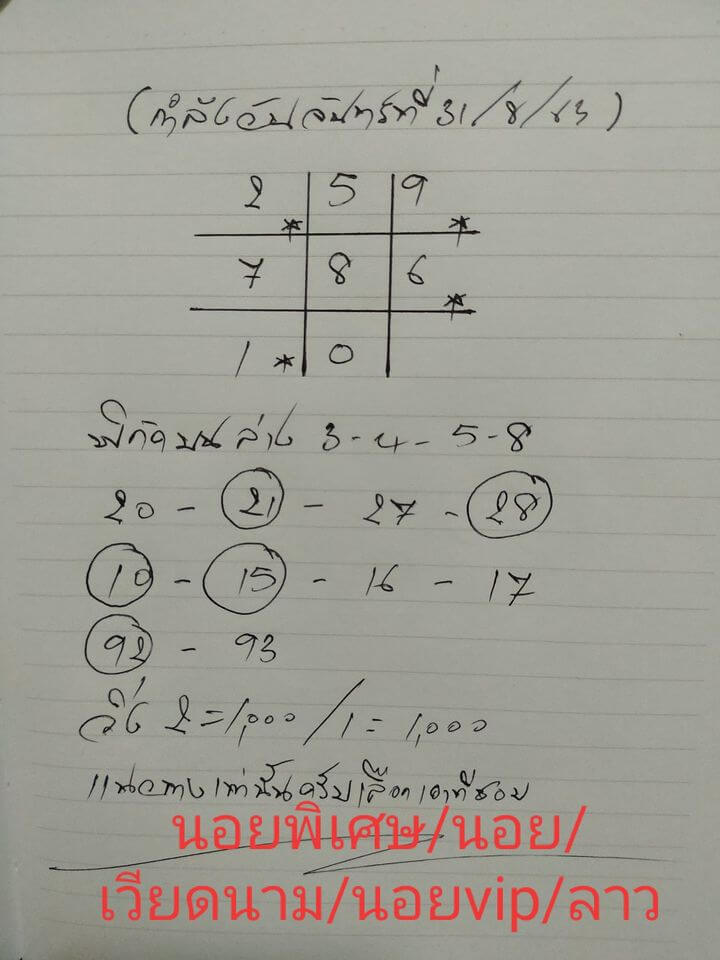 (กำลังวันจันทร์ที่ 31/8/63)
2 5 9
* *
7 8 6
*
1 * 0
พิกัดบนล่าง 3-4-5-8
20 - 21 - 27 - 28
10 - 15 - 16 - 17
92 - 93
วิ่ง 2 = 1,000 / 1 = 1,000
แนวทางเท่านั้นครับเลือกเอาที่ชอบ
นอยพิเศษ/นอย/
เวียดนาม/นอยvip/ลาว